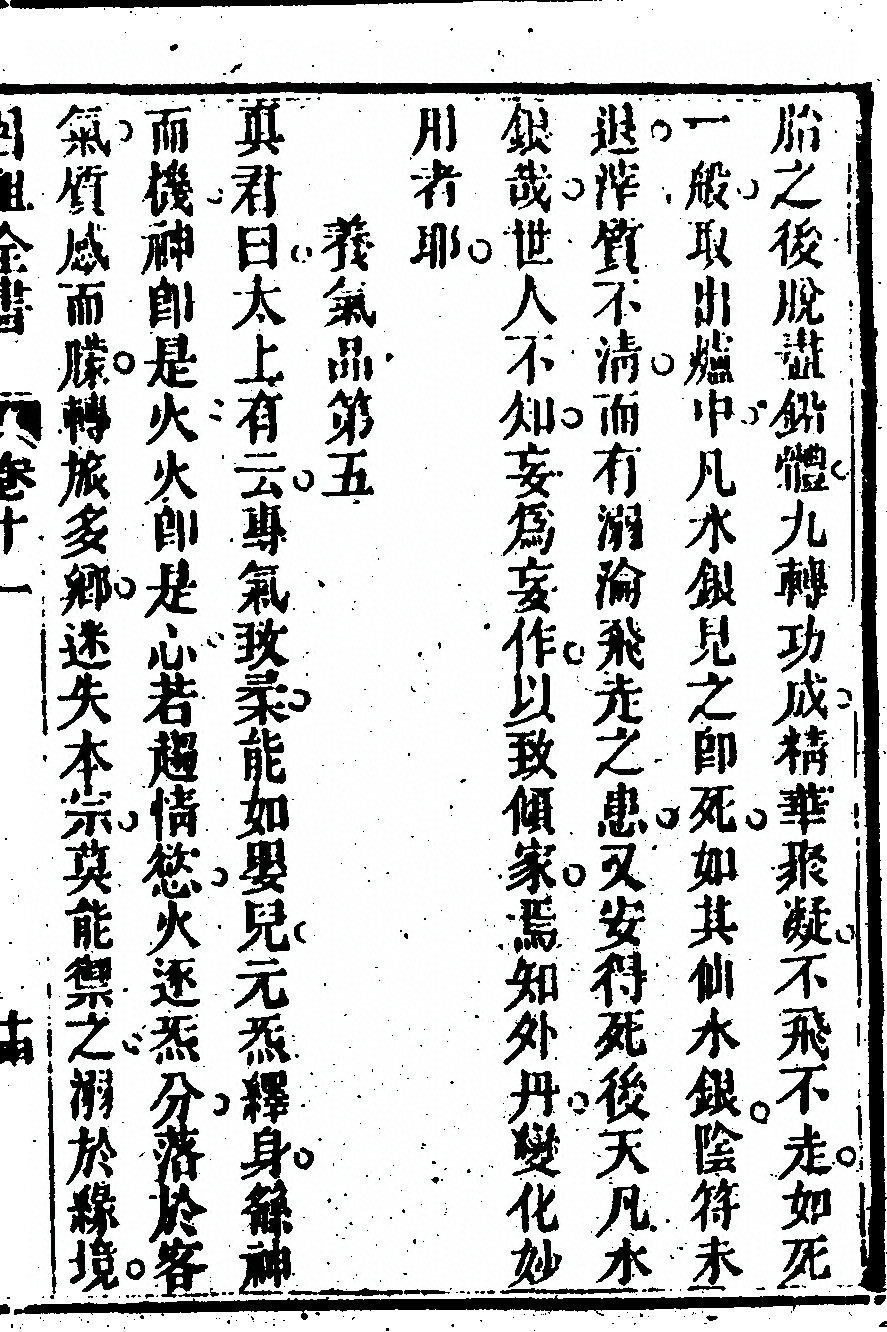 胎之後脫盡鉛體九轉功成精華聚凝不飛不走如死
一般取出爐中凡水銀見之卽死如其仙水銀陰符未
退滓質不淸而有溺淪飛走之患又安得死後天凡水
銀哉世人不知妄爲妄作以致傾家焉知外丹變化妙
用者耶
養氣品第五
眞君曰太上有云專氣致柔能如嬰兒元炁繹身繇神
而機神卽是火火卽是心若趨情慾火逐炁分落於客
氣質感而朦轉旅多鄕迷失本宗莫能禦之溺於緣境
呂祖全書 卷十一 十四